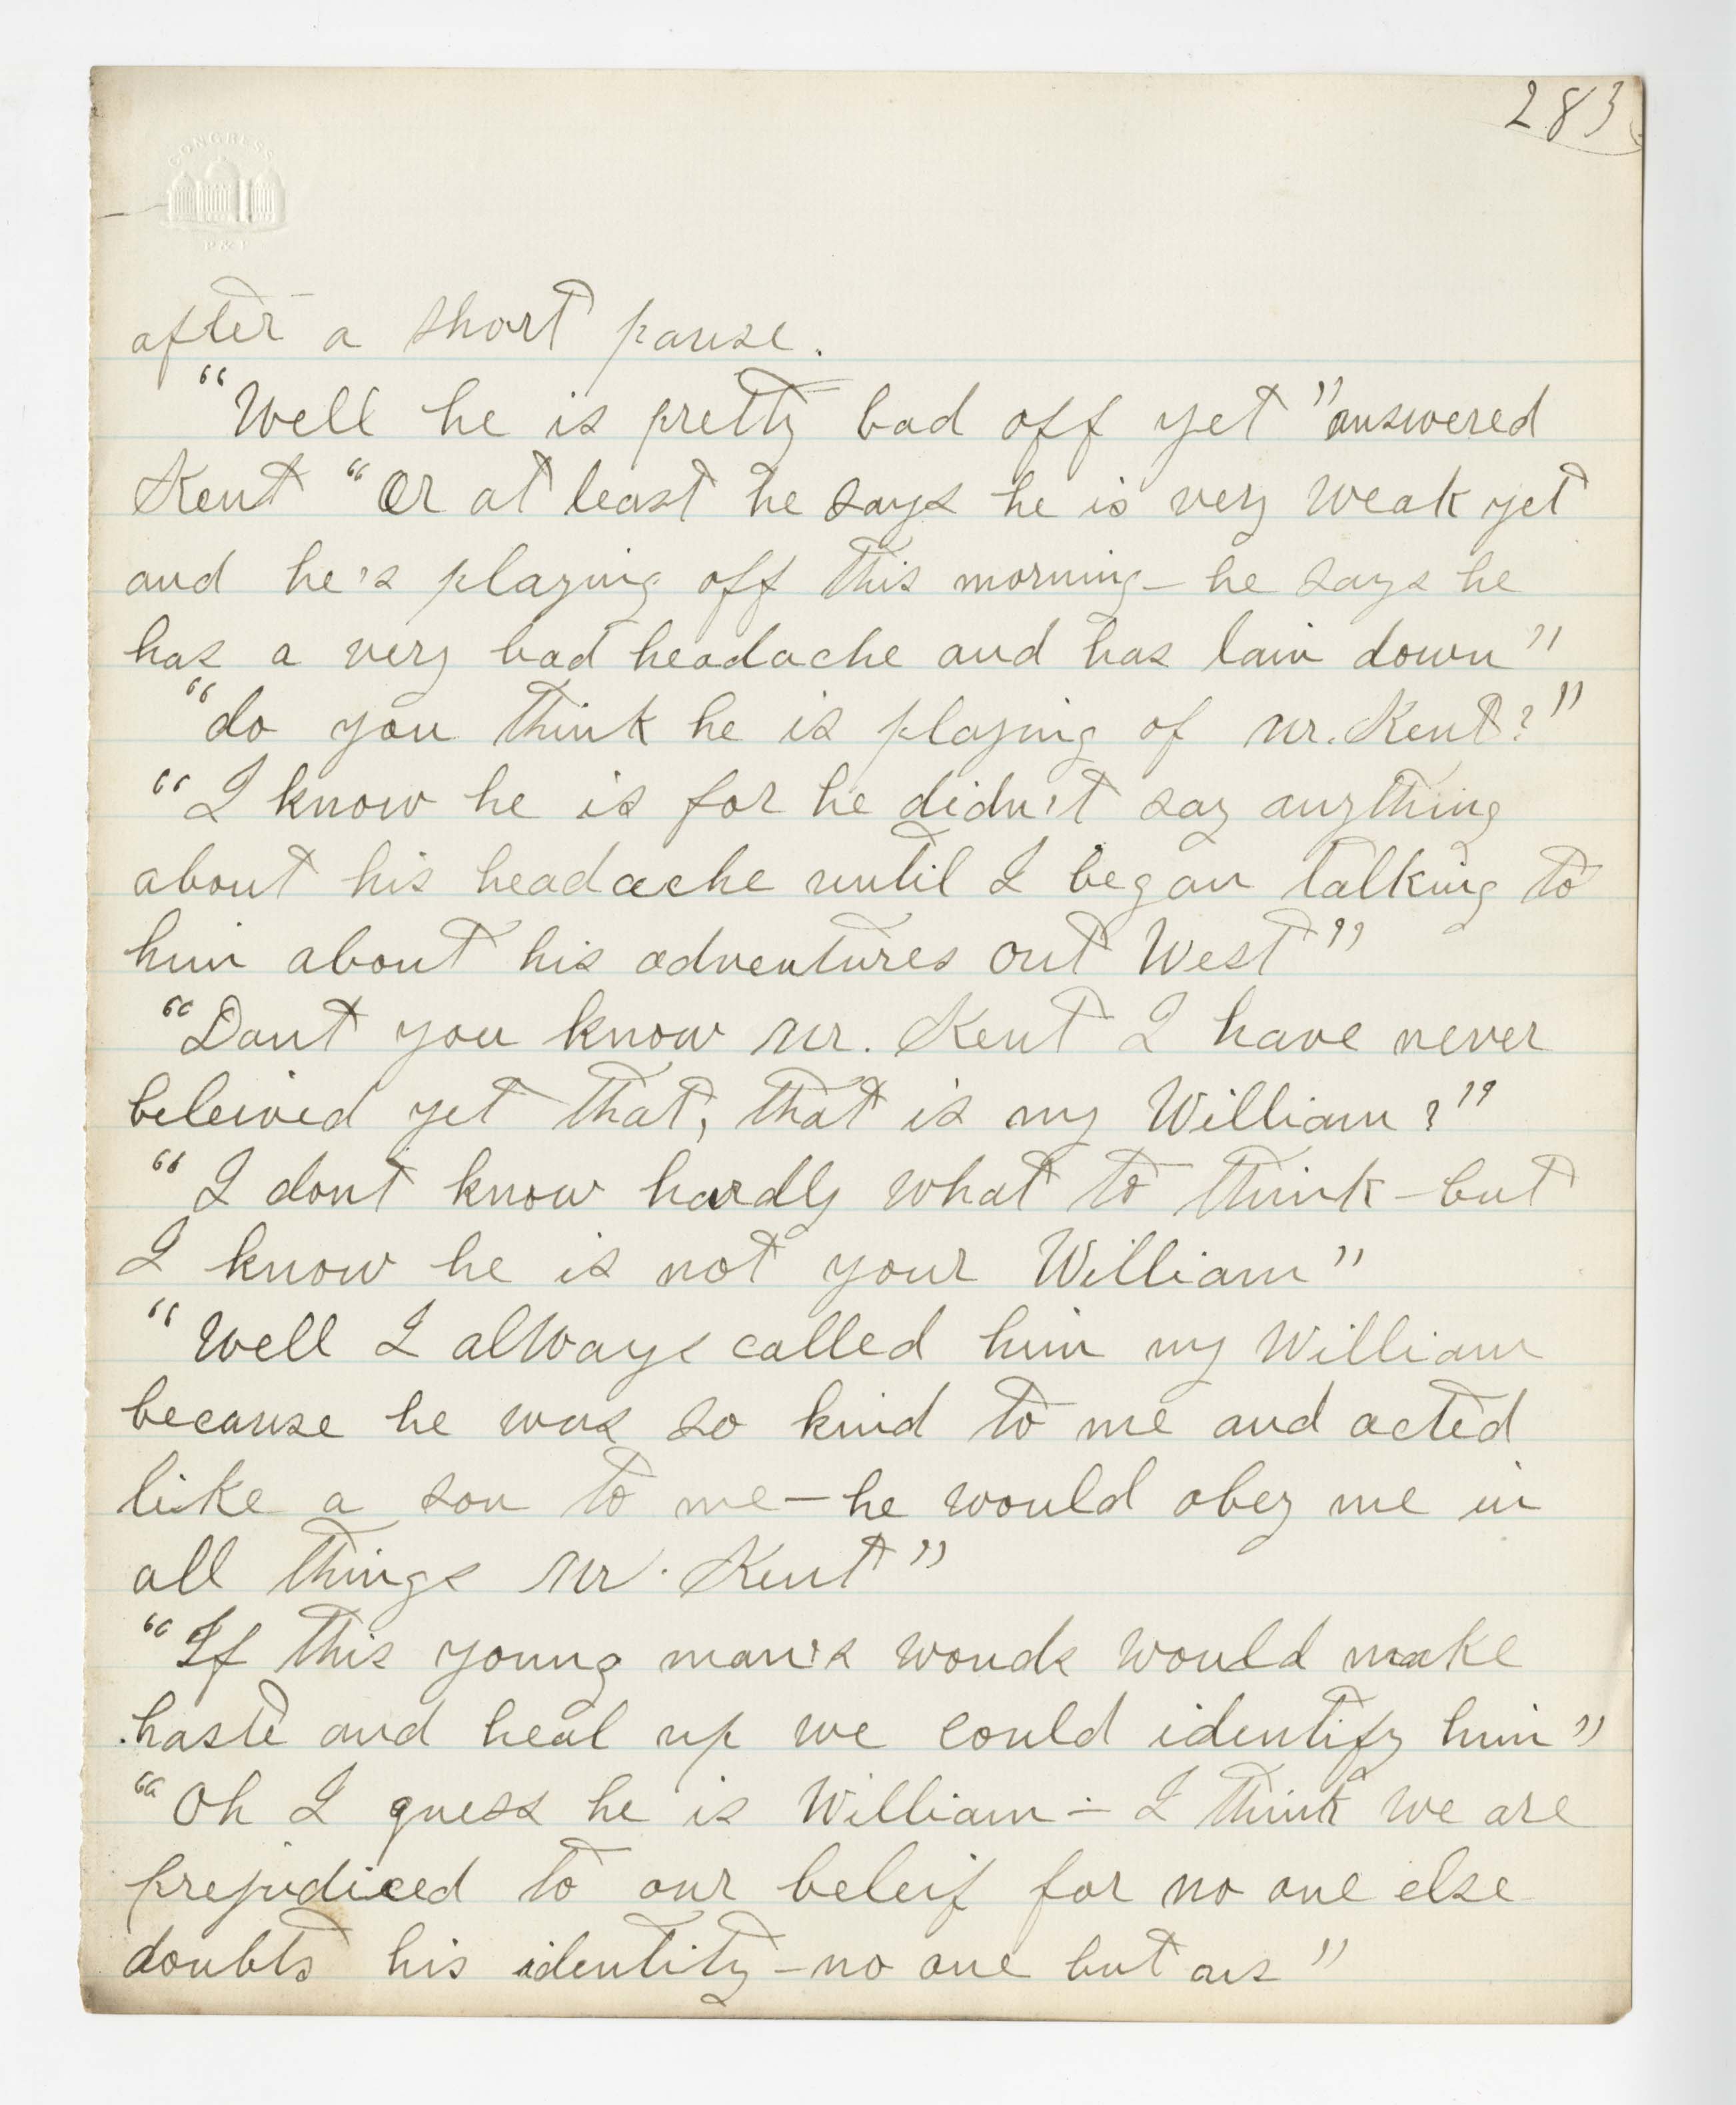 283
CONGRESS
P & P
after a short pause.
"Well he is pretty bad off yet" answered
Kent "Or at least he says he is very weak yet
and he's playing off this morning - he says he
has a very bad headache and has lain down"
"do you think he is playing of Mr. Kent?"
"I know he is for he didn't say anything
about his headache until I began talking to
him about his adventures out West"
"Dont you know Mr. Kent I have never
beleived yet that, that is my William?"
"I dont know hardly what to think - but
I know he is not your William"
"Well I always called him my William
because he was so kind to me and acted
like a son to me - he would obey me in
all things Mr. Kent"
"If this young man's wouds would make
haste and heal up we could identify him"
"Oh I guess he is William - I think we are
prejudiced to our beleif for no one else
doubts his identity - no one but us"